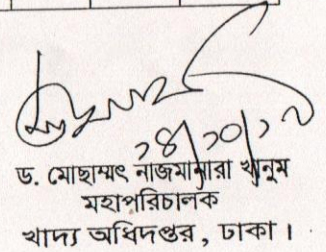 ২৪/১০/১৭
ড. মোছাম্মৎ নাজমানারা খানুম
মহাপরিচালক
খাদ্য অধিদপ্তর, ঢাকা।